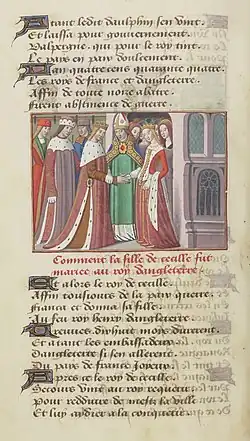 Atant ledit daulphin sen vint
Et laissa pour gouvernement
Dalpergne qui pour le roy tint
Le pays en paix doulcement
Lan quatre cens quarante quatre
Les roys de france et dangleterre
Affin de toute noise abatre
Firent abstinence de guerre
Comment la fille de cecille fut
mariee au roy dangleterre
Et alors le roy de cecille
Affin tousiours de la paix querre
fianca et donna sa fille
Au feu roy henry dangleterre
Treuves dixhuit moys durerent
Et atant les embassadeurs
Dangleterre si sen allerent
Du pays de france joyeux
Apres ce le roy de cecille
Secours vint au roy requerre
Pour reduire de mectz la ville
Et luy aydier a la conqueste